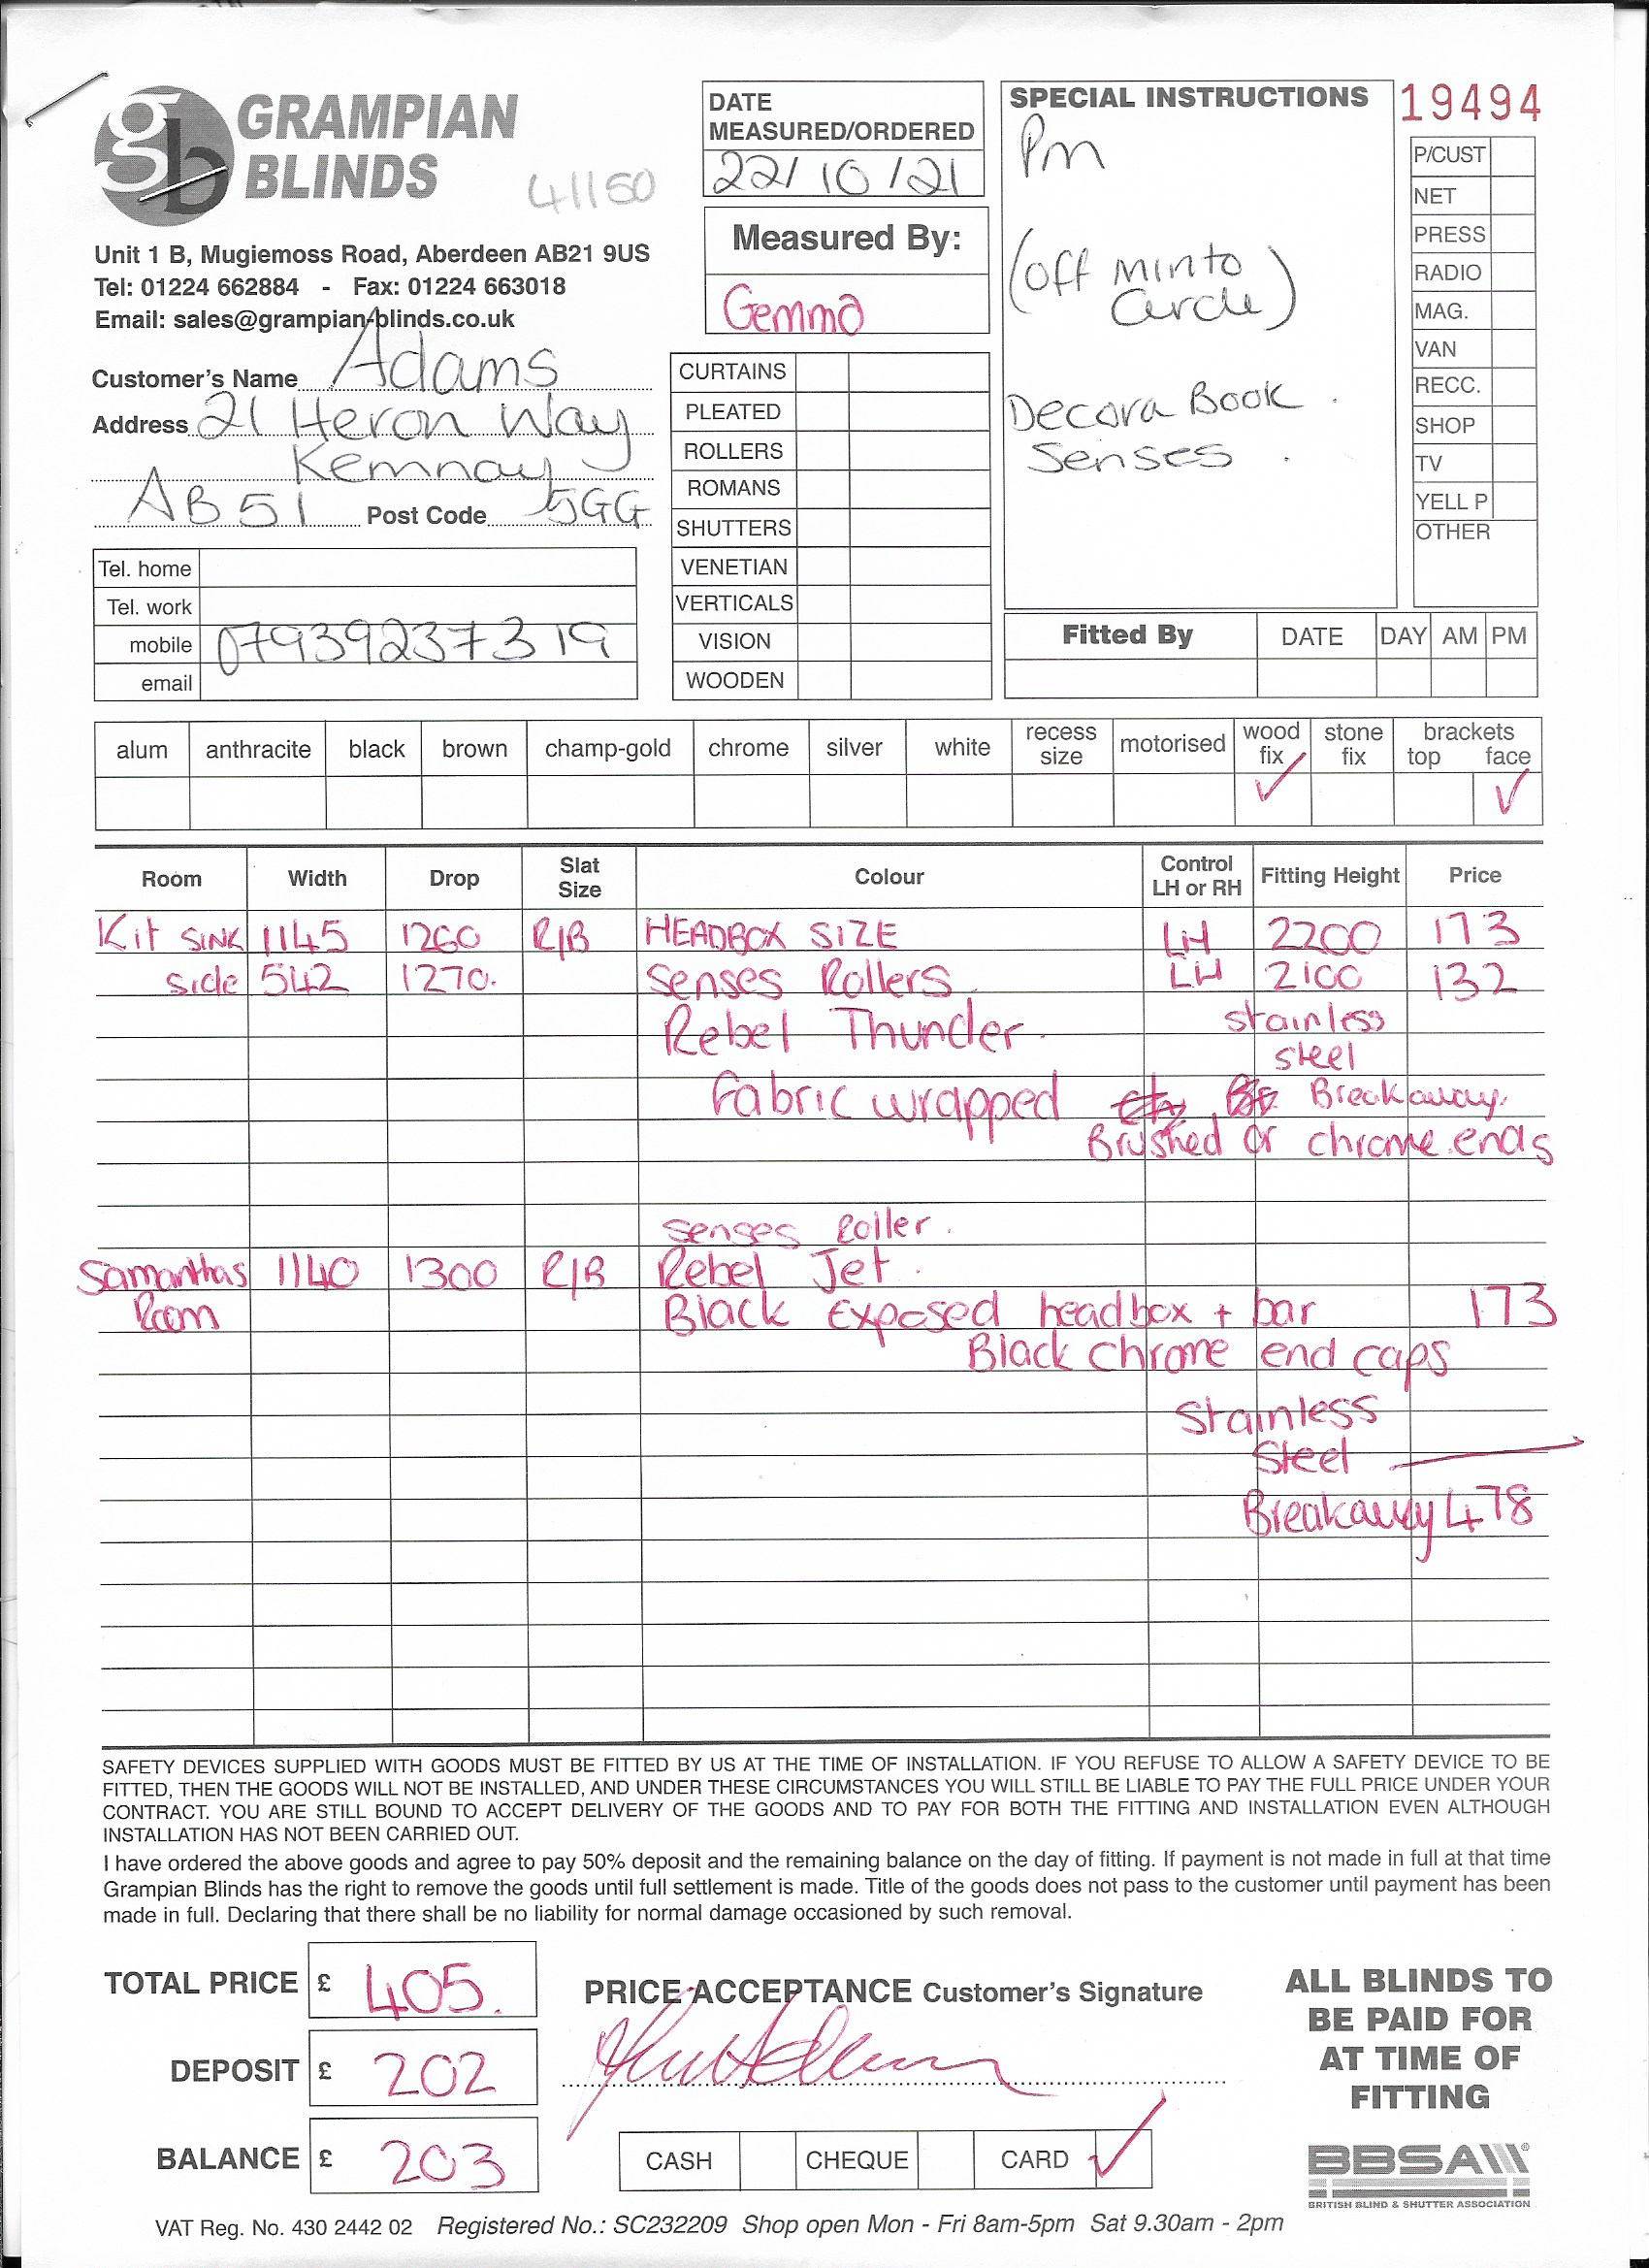 GRAMPIAN
BLINDS
41150
Unit 1 B, Mugiemoss Road, Aberdeen AB21 9US
Tel: 01224 662884 - Fax: 01224 663018
Email: sales@grampian-blinds.co.uk
Customer's Name Adams
Address 21 Heron Way
Kemnay
AB51 Post Code 5GG
Tel. home
Tel. work
mobile 07939237319
email
DATE
MEASURED/ORDERED
22/10/21
Measured By:
Gemma
CURTAINS
PLEATED
ROLLERS
ROMANS
SHUTTERS
VENETIAN
VERTICALS
VISION
WOODEN
SPECIAL INSTRUCTIONS
Pm
(off Minto
Circle)
Decora Book.
Senses.
19494
P/CUST
NET
PRESS
RADIO
MAG.
VAN
RECC.
SHOP
TV
YELL P
OTHER
Fitted By DATE DAY AM PM
alum anthracite black brown champ-gold chrome silver white recess size motorised wood fix ✓ stone fix brackets top face ✓
Room Width Drop Slat Size Colour Control LH or RH Fitting Height Price
Kit SINK 1145 1260 R/B HEADBOX SIZE LH 2200 173
side 542 1270. Senses Rollers LH 2100 132
Rebel Thunder. stainless
steel
Fabric wrapped Breakaway.
Brushed or chrome ends
Senses Roller.
Samanthas 1140 1300 R/B Rebel Jet.
Room Black Exposed headbox + bar 173
Black chrome end caps
Stainless
Steel
Breakaway 478
SAFETY DEVICES SUPPLIED WITH GOODS MUST BE FITTED BY US AT THE TIME OF INSTALLATION. IF YOU REFUSE TO ALLOW A SAFETY DEVICE TO BE
FITTED, THEN THE GOODS WILL NOT BE INSTALLED, AND UNDER THESE CIRCUMSTANCES YOU WILL STILL BE LIABLE TO PAY THE FULL PRICE UNDER YOUR
CONTRACT. YOU ARE STILL BOUND TO ACCEPT DELIVERY OF THE GOODS AND TO PAY FOR BOTH THE FITTING AND INSTALLATION EVEN ALTHOUGH
INSTALLATION HAS NOT BEEN CARRIED OUT.
I have ordered the above goods and agree to pay 50% deposit and the remaining balance on the day of fitting. If payment is not made in full at that time
Grampian Blinds has the right to remove the goods until full settlement is made. Title of the goods does not pass to the customer until payment has been
made in full. Declaring that there shall be no liability for normal damage occasioned by such removal.
TOTAL PRICE £ 405.
DEPOSIT £ 202
BALANCE £ 203
PRICE ACCEPTANCE Customer's Signature
CASH CHEQUE CARD ✓
ALL BLINDS TO
BE PAID FOR
AT TIME OF
FITTING
BBSA
BRITISH BLIND & SHUTTER ASSOCIATION
VAT Reg. No. 430 2442 02 Registered No.: SC232209 Shop open Mon - Fri 8am-5pm Sat 9.30am - 2pm